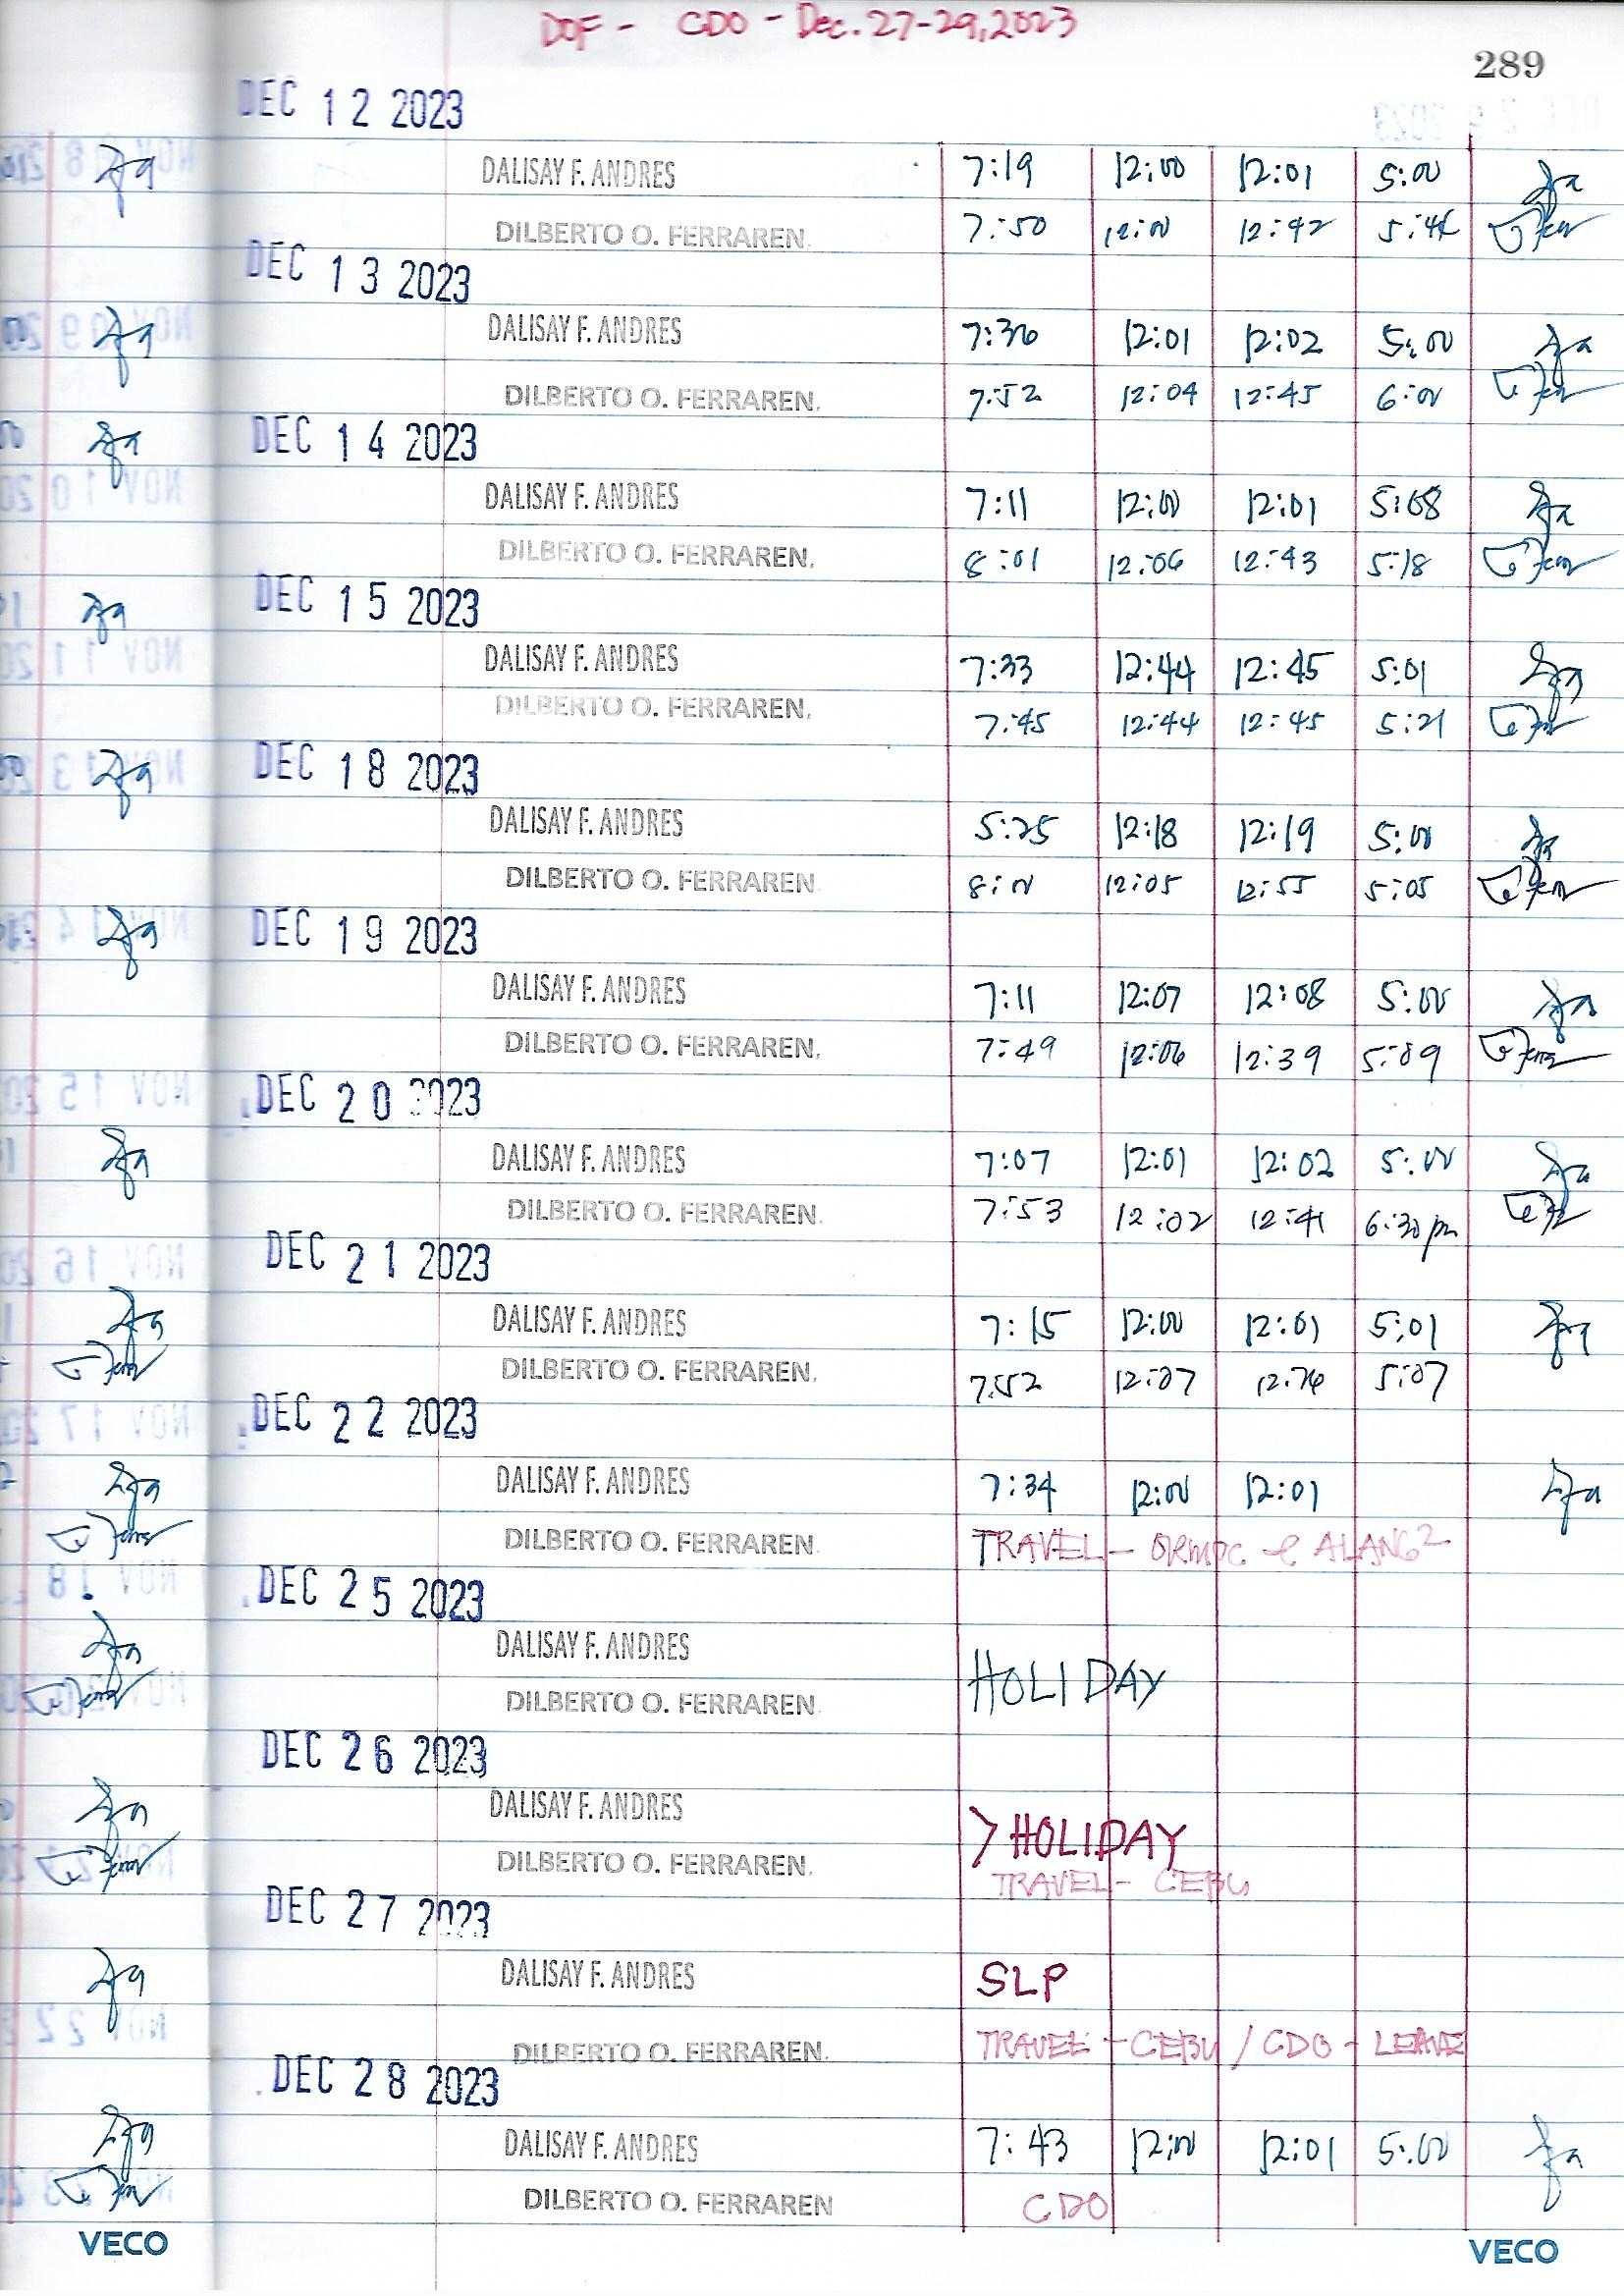 DOF - CDO - Dec. 27-29, 2023
289
DEC 12 2023
DALISAY F. ANDRES 7:19 12:00 12:01 5:00
DILBERTO O. FERRAREN. 7:50 12:00 12:42
DEC 13 2023
DALISAY F. ANDRES 7:36 12:01 12:02 5:00
DILBERTO O. FERRAREN. 7:52 12:04 12:45 6:00
DEC 14 2023
DALISAY F. ANDRES 7:11 12:00 12:01 5:08
DILBERTO O. FERRAREN. 8:01 12:06 12:43 5:18
DEC 15 2023
DALISAY F. ANDRES 7:33 12:44 12:45 5:01
DILBERTO O. FERRAREN. 7:45 12:44 12:45 5:21
DEC 18 2023
DALISAY F. ANDRES 5:25 12:18 12:19 5:00
DILBERTO O. FERRAREN. 8:00 12:05 12:55 5:05
DEC 19 2023
DALISAY F. ANDRES 7:11 12:07 12:08 5:00
DILBERTO O. FERRAREN. 7:49 12:06 12:39 5:09
DEC 20 2023
DALISAY F. ANDRES 7:07 12:01 12:02 5:00
DILBERTO O. FERRAREN. 7:53 12:02 12:41 6:30 pm
DEC 21 2023
DALISAY F. ANDRES 7:15 12:00 12:01 5:01
DILBERTO O. FERRAREN. 7:52 12:07 5:07
DEC 22 2023
DALISAY F. ANDRES 7:34 12:00 12:01
DILBERTO O. FERRAREN. TRAVEL - ALANG2
DEC 25 2023
DALISAY F. ANDRES
HOLIDAY
DILBERTO O. FERRAREN.
DEC 26 2023
DALISAY F. ANDRES
> HOLIDAY
DILBERTO O. FERRAREN.
TRAVEL - CEBU
DEC 27 2023
DALISAY F. ANDRES SLP
DILBERTO O. FERRAREN. TRAVEL - CEBU / CDO - LEAVE
DEC 28 2023
DALISAY F. ANDRES 7:43 12:00 12:01 5:00
DILBERTO O. FERRAREN CDO
VECO VECO